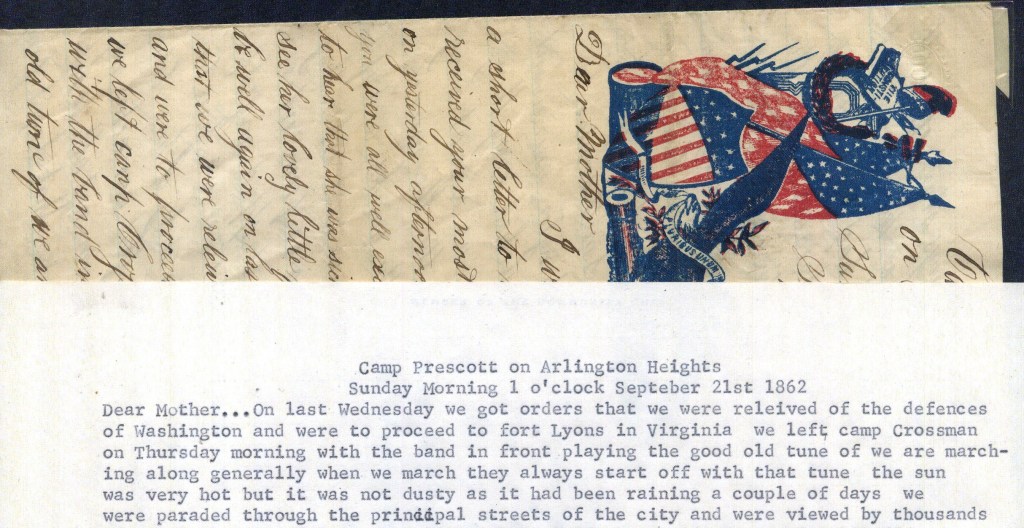 on
Dear Mother
I w
a short letter to
received your most
on yesterday afternoon
you were all well exc
to her that she was
see her lovely little
that we were relei
and were to procee
we left camp
with the band in
old tune of we a
Camp Prescott on Arlington Heights
Sunday Morning 1 o'clock Septeber 21st 1862
Dear Mother...On last Wednesday we got orders that we were releived of the defences
of Washington and were to proceed to fort Lyons in Virginia we left camp Crossman
on Thursday morning with the band in front playing the good old tune of we are march-
ing along generally when we march they always start off with that tune the sun
was very hot but it was not dusty as it had been raining a couple of days we
were paraded through the principal streets of the city and were viewed by thousands